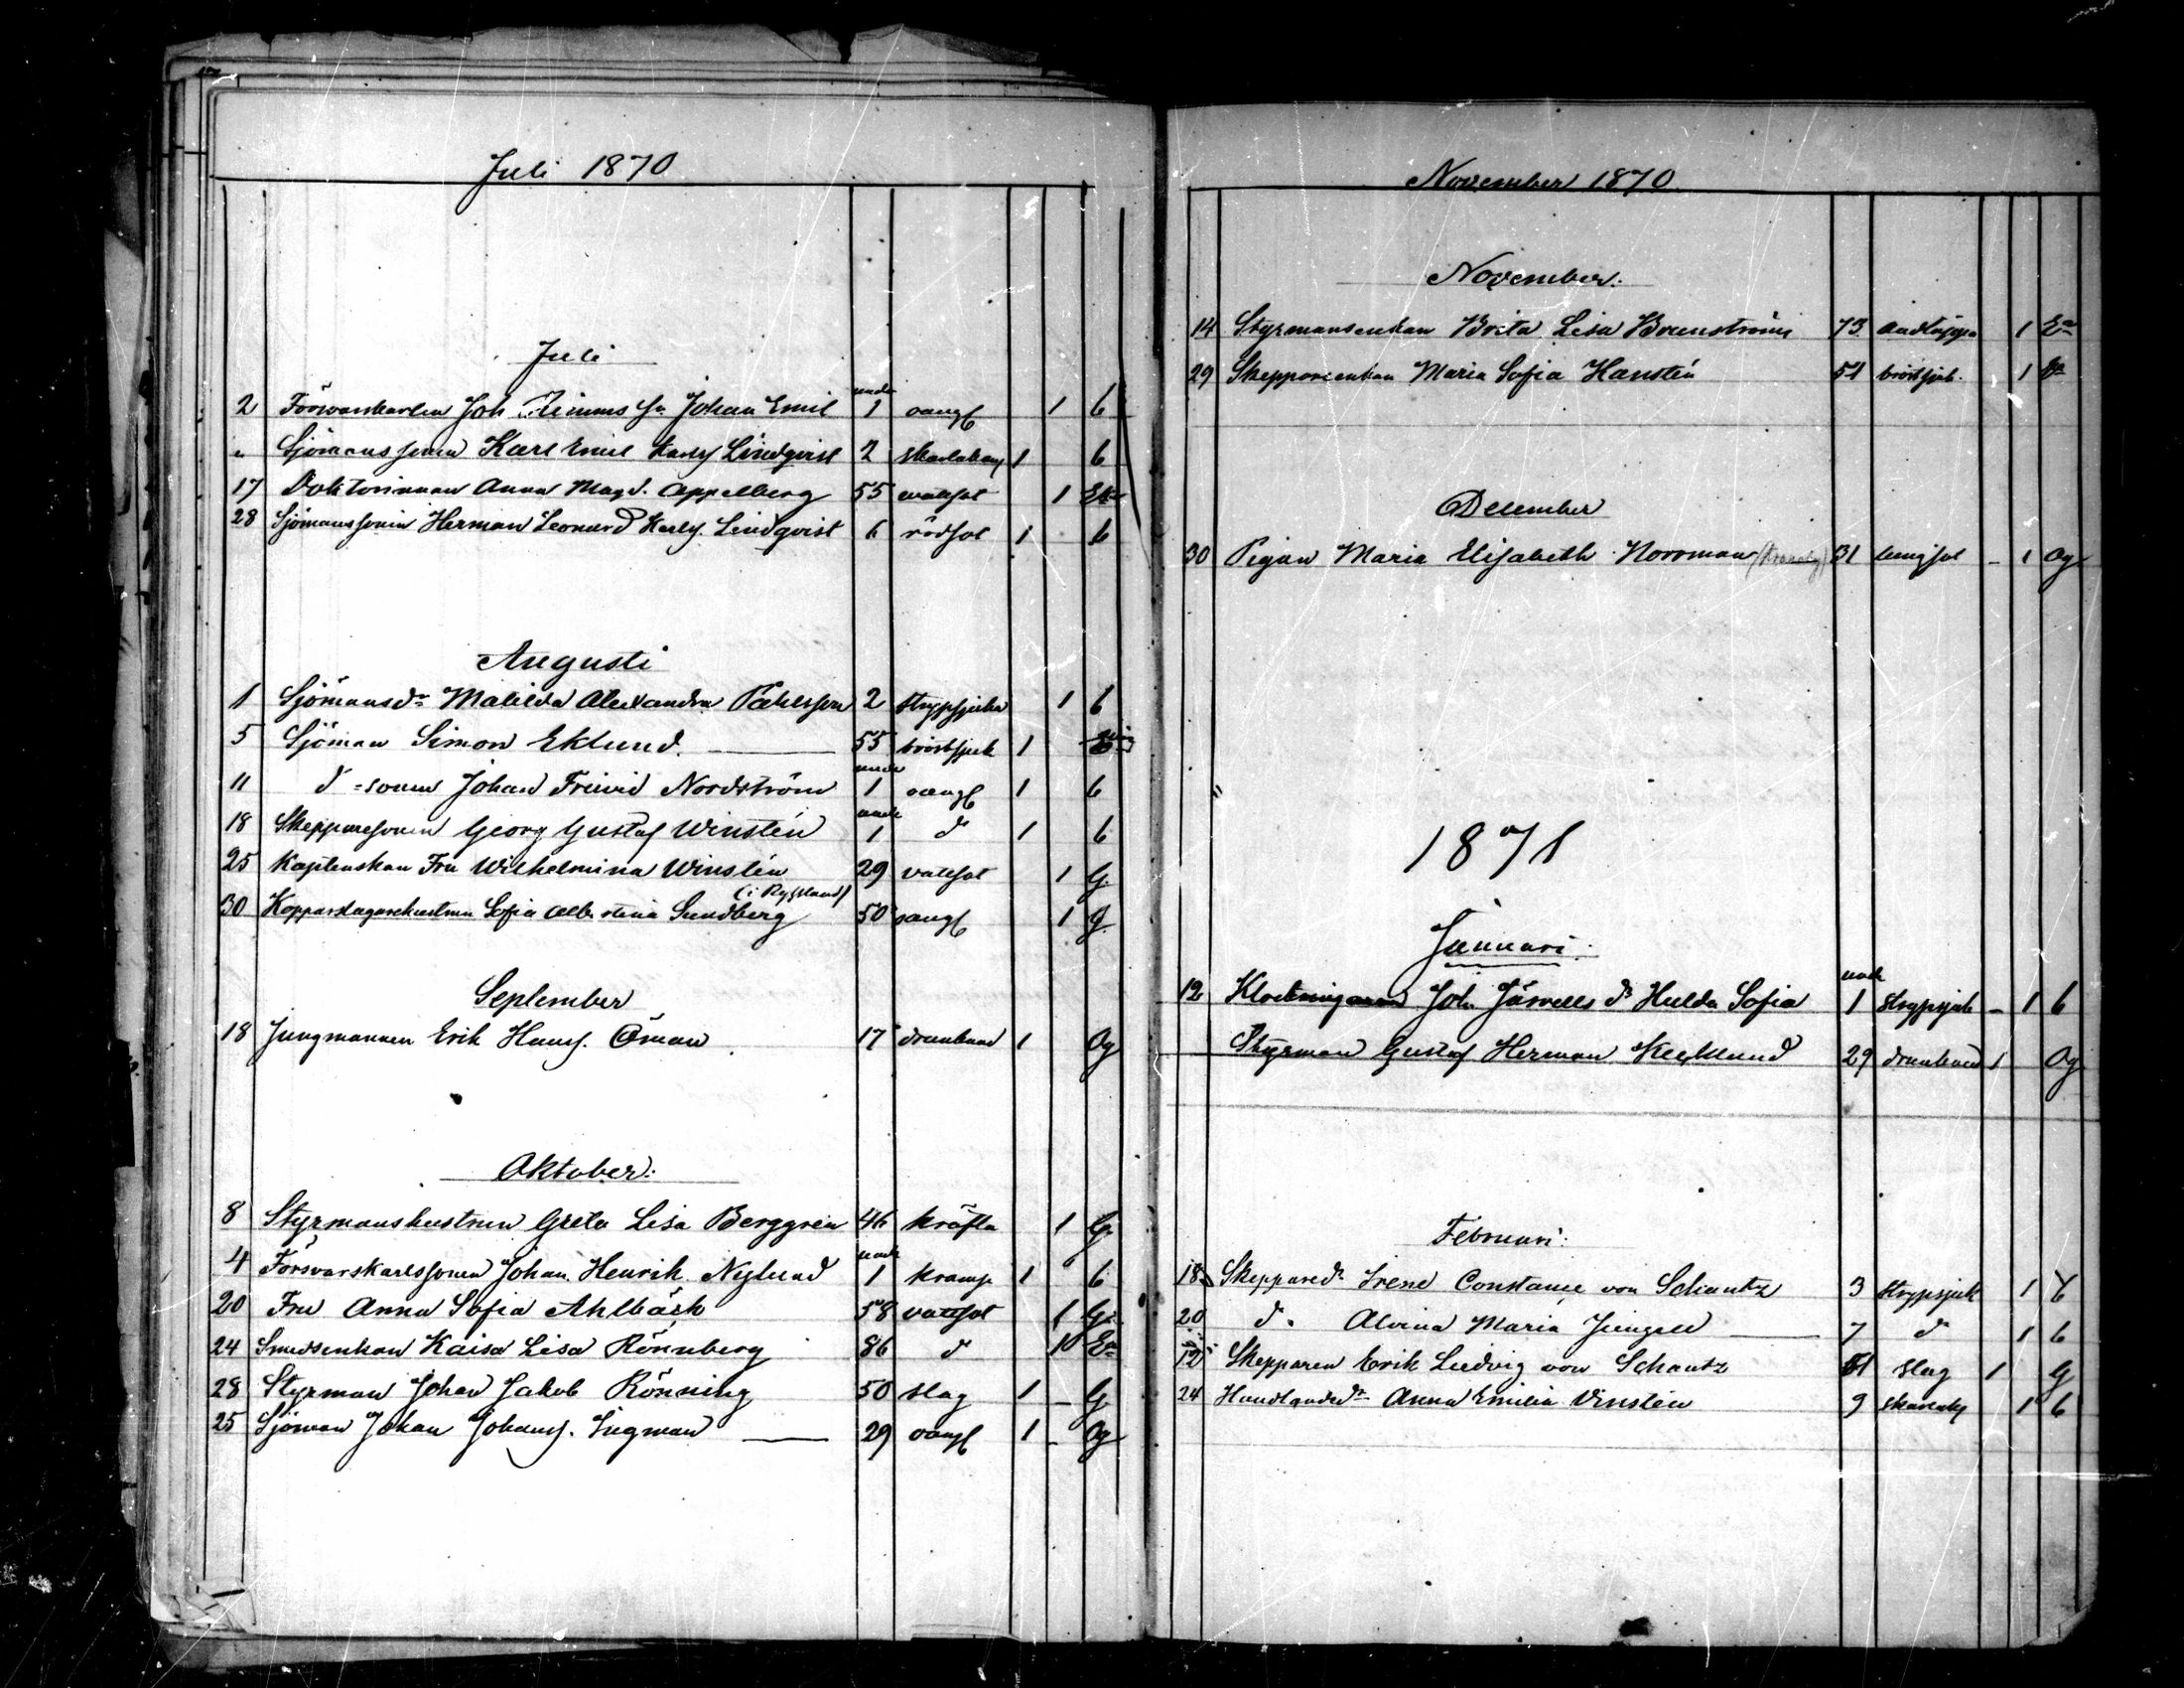 Juli 1870
Juli
2 Försvarskarlen Joh Timms sn Johan Emil under 1 oangf 1 b
" Sjömanssonen Karl Emil Karlsf Lindqvist 2 skarlakansf 1 b
17 Doktorinnan Anna Magd. Appelberg 55 vattsot 1 Ek
28 Sjömanssonen Herman Leonard Karlsf. Lindqvist 6 rödsot 1 b
Augusti
1 Sjömansdr Matilda Alexandra Påhlsson 2 strypsjuka 1 b
5 Sjöman Simon Eklund 55 bröstsjuk 1
11 d-sonen Johan Frivid Nordström under 1 oangf 1 b
18 Skepparesonen Georg Gustaf Winstén under 1 do 1 b
25 Kaptenskan Fru Wilhelmina Winstén 29 vattsot 1 G
(i Ryssland)
30 Kopparslagarehustrun Sofia Albertina Sundberg 50 oangf 1 G
September
18 Jungmannen Erik Hansf. Öman 17 drunknad 1 Og
Oktober.
8 Styrmanshustrun Greta Lisa Berggren 46 kräfta 1 G
4 Försvarskarlssonen Johan Henrik Nylund under 1 kramp 1 b
20 Fru Anna Sofia Ahlbäck 58 vattsot 1 G
24 Smedsenkan Kaisa Lisa Rönnberg 86 d 10 En
28 Styrman Johan Jakob Rönning 50 slag 1 - G
25 Sjöman Johan Johansf. Ingman 29 oangf 1 - Og
November 1870
November.
14 Styrmansenkan Brita Lisa Brunström 73 andtäppa 1 En
29 Skeppareenkan Maria Sofia Hanstén 51 bröstsjuk. 1 En
December
30 Pigan Maria Elisabeth Norrman 31 lungsot - 1 Og
"
1871
Januari.
12 Joh Järvells dr Hulda Sofia under 1 strypsjuk - 1 b
Styrman Gustaf Herman 29 drunknad 1 Og
Februari.
18 Skeppared. Irene Constance von Schantz 3 strypsjuk 1 b
20 d. Alvina Maria Jungell 7 d 1 b
12 Skepparen Erik Ludvig von Schantz 51 slag 1 G
24 Handlandedr Anna Emilia Vinstén 9 skarlakf 1 b